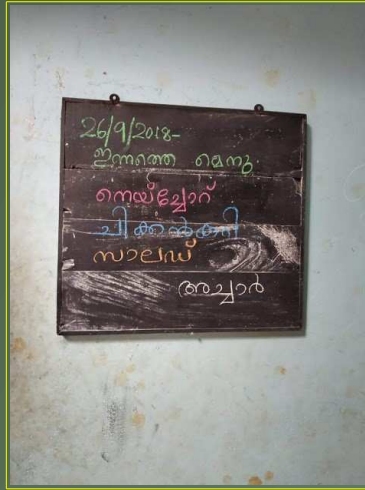 26/9/2018-
ഇന്നത്തെ മെനു.
നെയ്ച്ചോറ്
ചിക്കൻകറി
സാലഡ്
അച്ചാർ